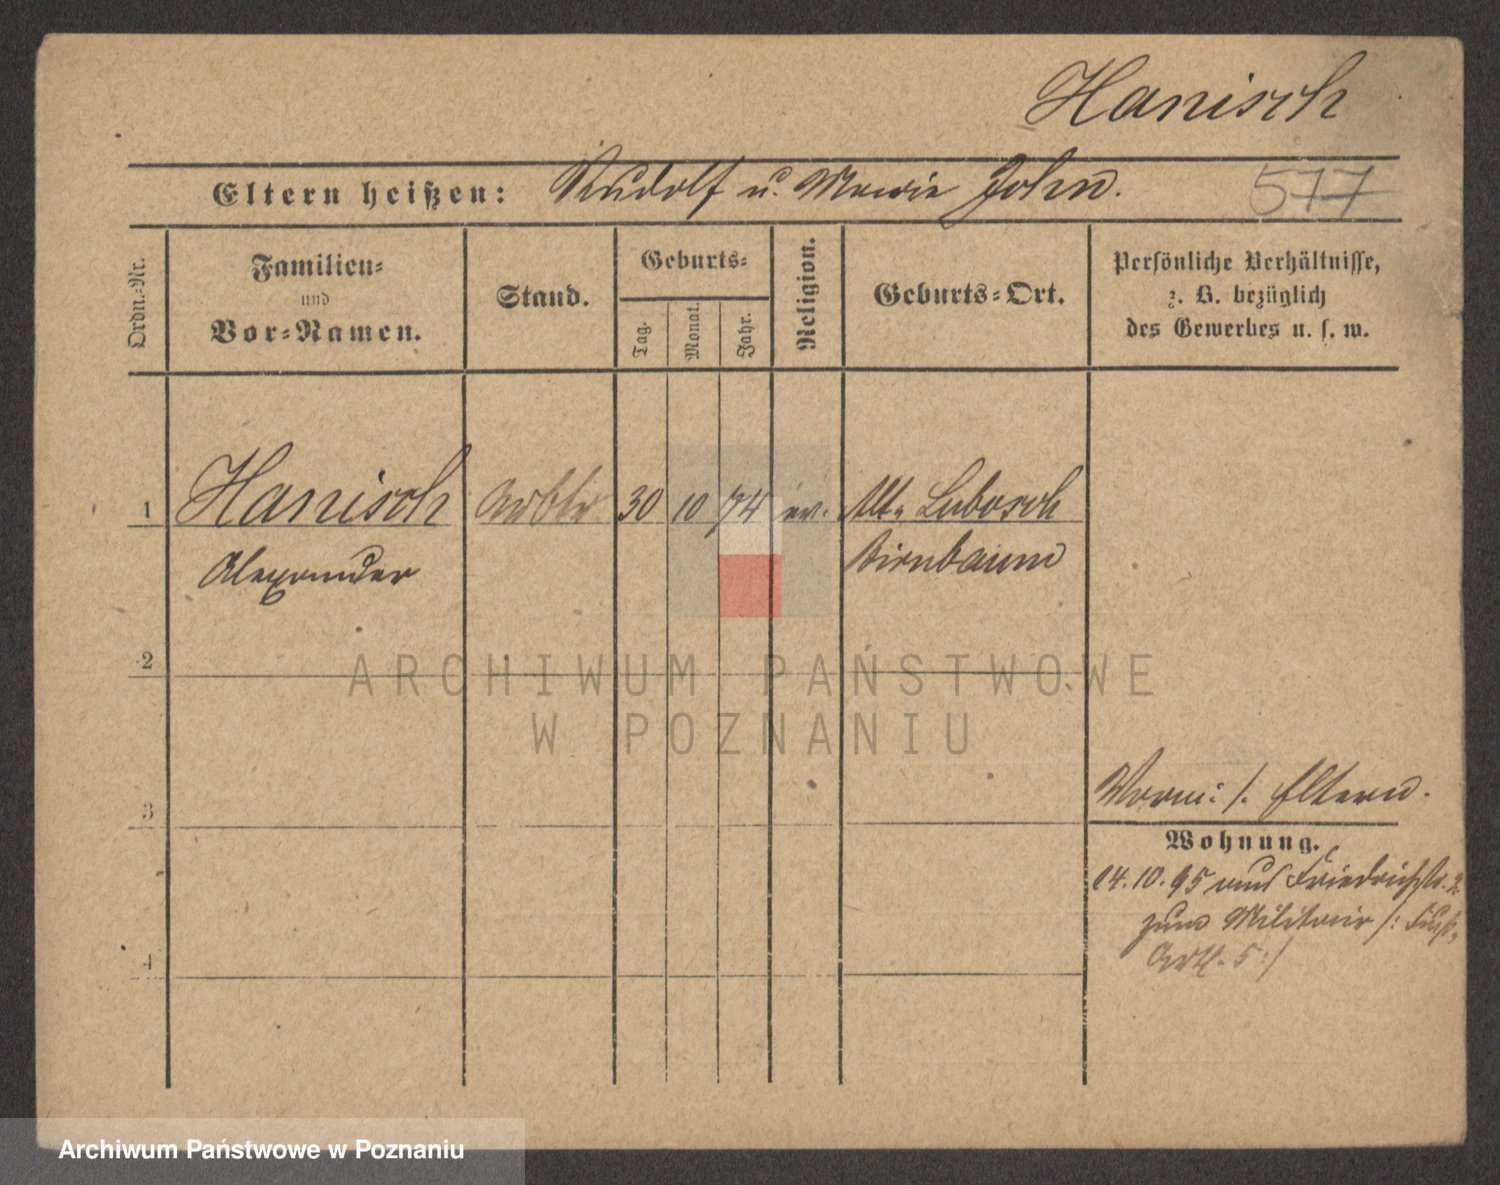 Hanisch
Eltern heißen: Rudolf u. Marie John.
577
Ordn.-Nr.
Familien-
und
Vor-Namen.
Stand.
Geburts-
Tag.
Monat.
Jahr.
Religion.
Geburts-Ort.
Persönliche Verhältnisse,
z. B. bezüglich
des Gewerbes u. s. w.
1 Hanisch Arbtr 30 10 74 ev. Alt-Lubosch
Alexander Birnbaum
2
ARCHIWUM PAŃSTWOWE
W POZNANIU
3
Vorm: /. Eltern.
Wohnung.
14.10.95 von Friedrichstr. 2
zum Militair /: Fuß-
Artl. 5:/
4
Archiwum Państwowe w Poznaniu